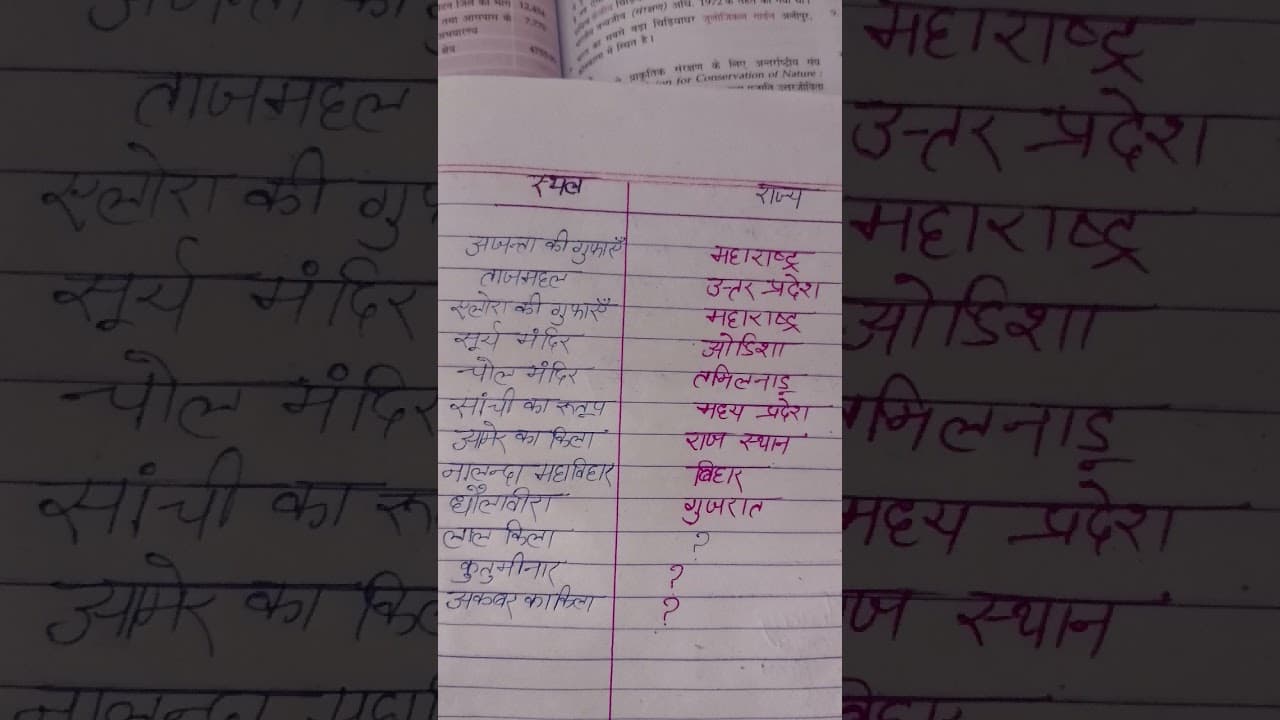 स्थल राज्य
अजन्ता की गुफाएँ महाराष्ट्र
ताजमहल उत्तर प्रदेश
एलोरा की गुफाएँ महाराष्ट्र
सूर्य मंदिर ओडिशा
चोल मंदिर तमिलनाडु
सांची का स्तूप मध्य प्रदेश
आमेर का किला राज स्थान
नालन्दा महाविहार बिहार
धौलावीरा गुजरात
लाल किला ?
कुतुमीनार ?
अकबर का किला ?